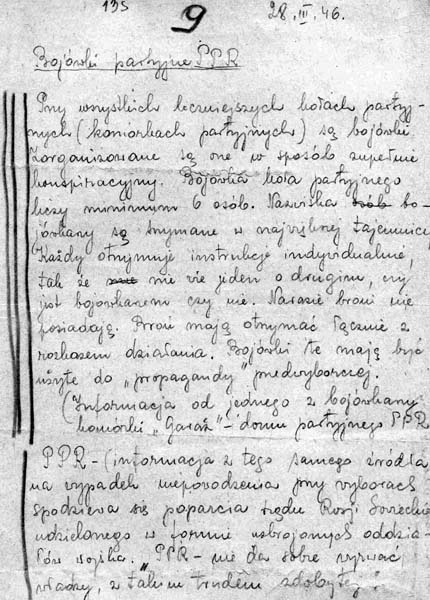 135
9
28.III.46.
Bojówki partyjne PPR
Przy wszystkich liczniejszych kołach partyj-
nych (komórkach partyjnych) są bojówki.
Zorganizowane są one w sposób zupełnie
konspiracyjny. Bojówka koła partyjnego
liczy minimum 6 osób. Nazwiska osób bo-
jówkarzy są trzymane w największej tajemnicy.
Każdy otrzymuje instrukcje indywidualnie,
tak że nie wie jeden o drugim, czy
jest bojówkarzem czy nie. Narazie broni nie
posiadają. Broń mają otrzymać łącznie z
rozkazem działania. Bojówki te mają być
użyte do „propagandy" przedwyborczej.
(Informacja od jednego z bojówkarzy
komórki „Garaż" – domu partyjnego PPR
PPR – (informacja z tego samego źródła
na wypadek niepowodzenia przy wyborach
spodziewa się poparcia rządu Rosji Sowieckiej
udzielonego w formie uzbrojonych oddzia-
łów wojska. „PPR – nie da sobie wyrwać
władzy, z takim trudem zdobytej!